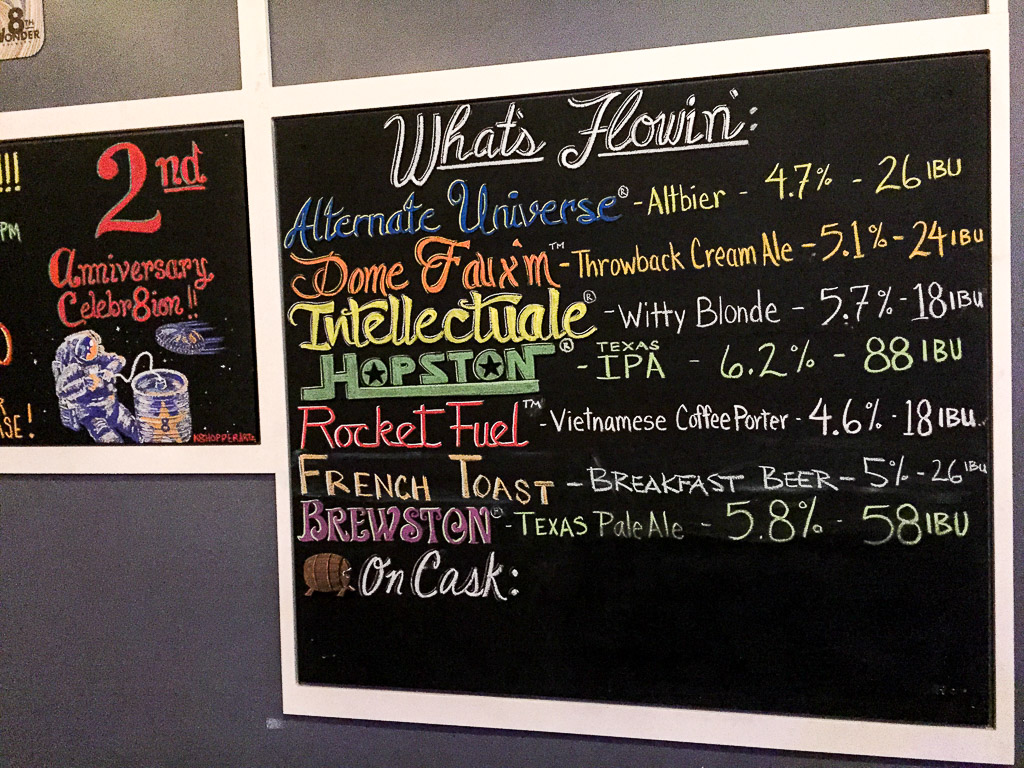 8TH
WONDER
!!!
PM
SE!
2nd
Anniversary
Celebr8ion!!
8
What's Flowin':
Alternate Universe® - Altbier - 4.7% - 26 IBU
Dome Faux'm™ - Throwback Cream Ale - 5.1% - 24 IBU
Intellectuale® - Witty Blonde - 5.7% - 18 IBU
HOPSTON® - TEXAS IPA - 6.2% - 88 IBU
Rocket Fuel™ - Vietnamese Coffee Porter - 4.6% - 18 IBU
FRENCH TOAST - BREAKFAST BEER - 5% - 26 IBU
BREWSTON® - TEXAS Pale Ale - 5.8% - 58 IBU
On Cask: